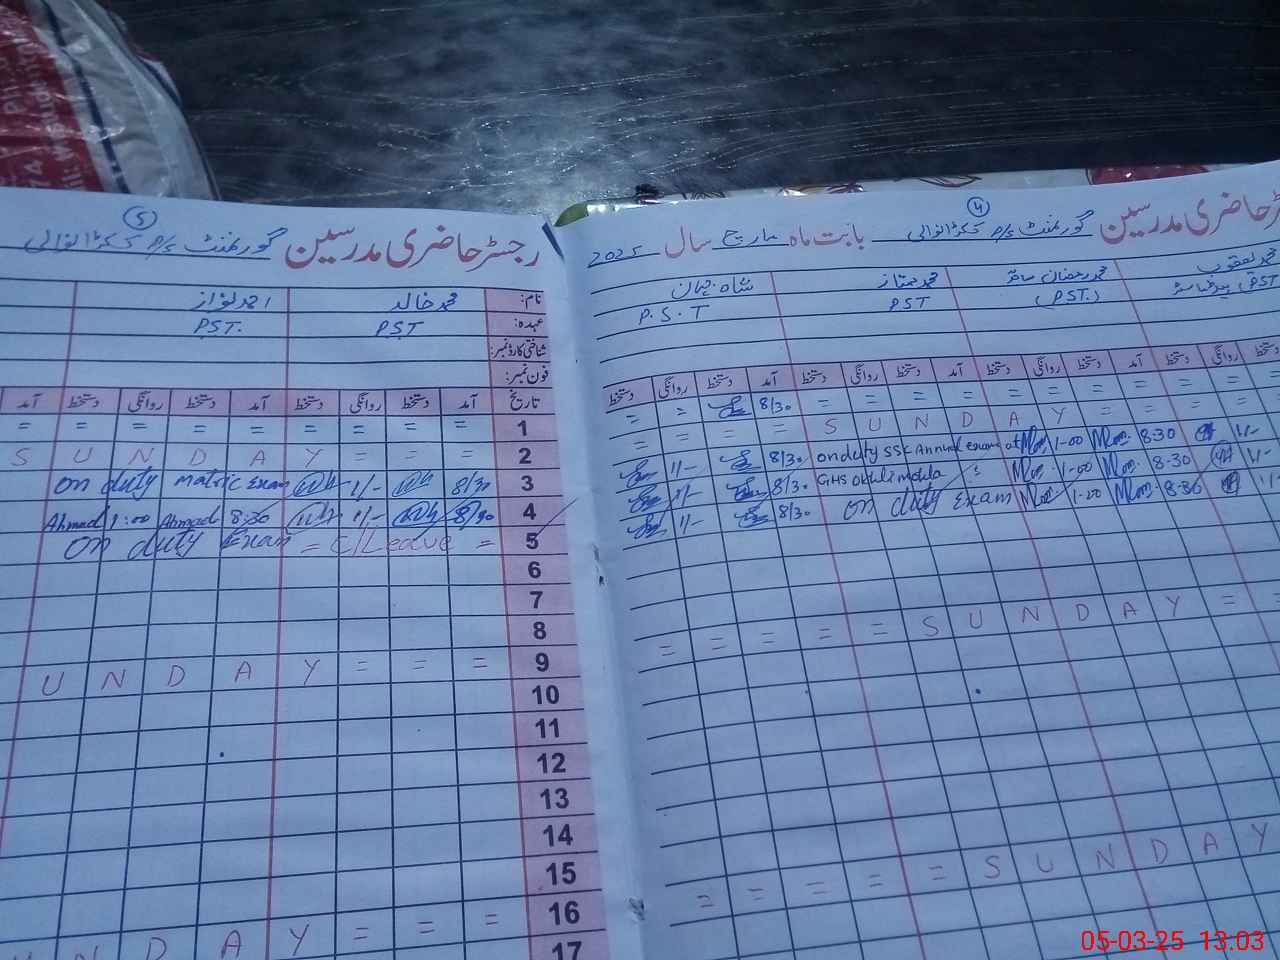 رجسٹر حاضری مدرسین گورنمنٹ P/S ککڑانوالی 4 بابت ماہ مارچ سال 2025
محمد یعقوب محمد رمضان محمد ممتاز شاہ جہان
(PST) (PST.) PST P.S.T
دستخط روانگی دستخط آمد دستخط روانگی دستخط آمد دستخط روانگی دستخط آمد دستخط روانگی دستخط
= = = = = = = = 8/30 = =
S U N D A Y = = = = =
1/- 8-30 1-00 on duty SSC Annual exam at 8/30 1/-
1/- 8-30 1-00 GHS 8/30 1/-
1/- 8-30 1-00 on duty Exam 8/30 1/-
= = = = = S U N D A Y = =
= = = = = S U N D A Y
رجسٹر حاضری مدرسین گورنمنٹ P/S ککڑانوالی 5
نام: محمد خالد احمد نواز
عہدہ: PST PST.
شناختی کارڈ نمبر:
فون نمبر:
تاریخ آمد دستخط روانگی دستخط آمد دستخط روانگی دستخط آمد
1 = = = = = = = = =
2 = = = S U N D A Y
3 8/30 1/- on duty matric Exam
4 8/30 1/- 8:30 Ahmad 1:00 Ahmad
5 = C/Leave = on duty Exam
6
7
8
9 = = = U N D A Y
10
11
12
13
14
15
16 = = = U N D A Y
17
05-03-25 13.03